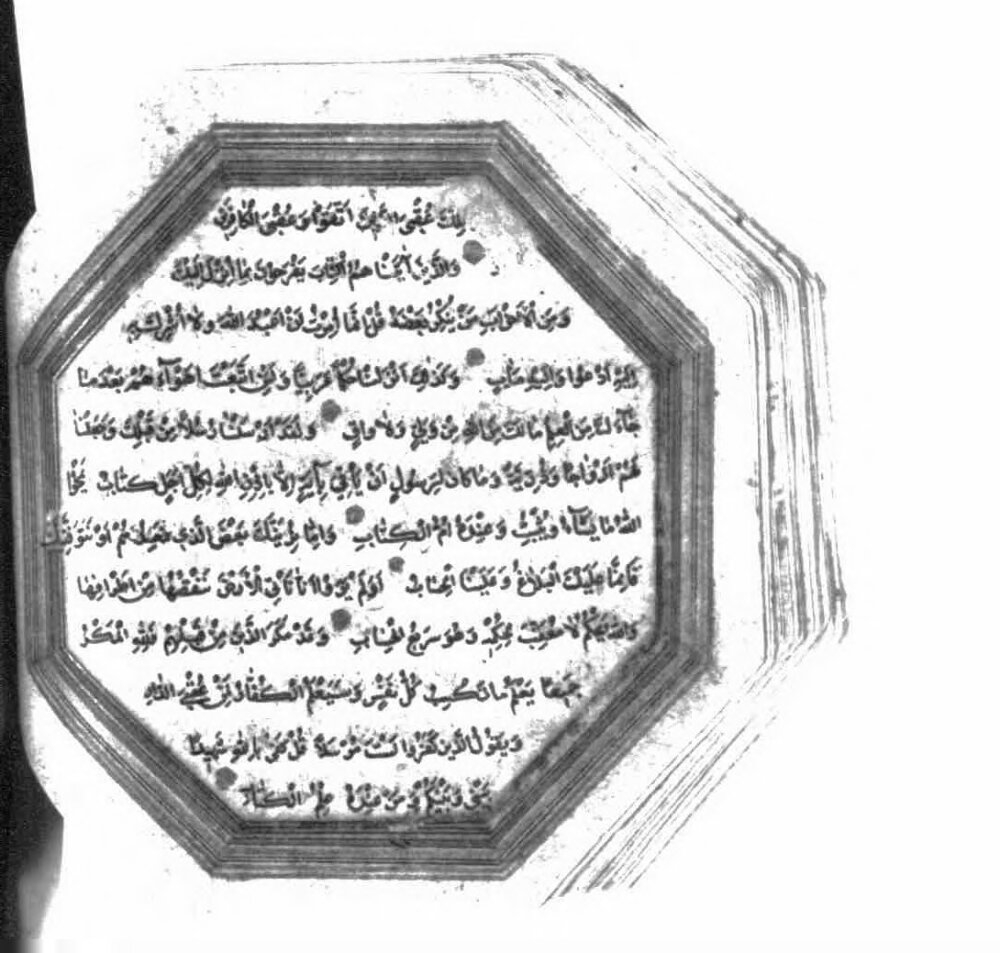 تِلْكَ عُقْبَى الَّذِينَ اتَّقَوْا وَعُقْبَى الْكَافِرِينَ
وَالَّذِينَ آتَيْنَاهُمُ الْكِتَابَ يَفْرَحُونَ بِمَا أُنْزِلَ إِلَيْكَ
وَمِنَ الْأَحْزَابِ مَنْ يُنْكِرُ بَعْضَهُ قُلْ إِنَّمَا أُمِرْتُ أَنْ أَعْبُدَ اللَّهَ وَلَا أُشْرِكَ بِهِ
إِلَيْهِ أَدْعُوا وَإِلَيْهِ مَآبِ وَكَذَلِكَ أَنْزَلْنَاهُ حُكْمًا عَرَبِيًّا وَلَئِنِ اتَّبَعْتَ أَهْوَاءَهُمْ بَعْدَ مَا
جَاءَكَ مِنَ الْعِلْمِ مَا لَكَ مِنَ اللَّهِ مِنْ وَلِيٍّ وَلَا وَاقٍ وَلَقَدْ أَرْسَلْنَا رُسُلًا مِنْ قَبْلِكَ وَجَعَلْنَا
لَهُمْ أَزْوَاجًا وَذُرِّيَّةً وَمَا كَانَ لِرَسُولٍ أَنْ يَأْتِيَ بِآيَةٍ إِلَّا بِإِذْنِ اللَّهِ لِكُلِّ أَجَلٍ كِتَابٌ يَمْحُوا
اللَّهُ مَا يَشَاءُ وَيُثْبِتُ وَعِنْدَهُ أُمُّ الْكِتَابِ وَإِمَّا نُرِيَنَّكَ بَعْضَ الَّذِي نَعِدُهُمْ أَوْ نَتَوَفَّيَنَّكَ
فَإِنَّمَا عَلَيْكَ الْبَلَاغُ وَعَلَيْنَا الْحِسَابُ أَوَلَمْ يَرَوْا أَنَّا نَأْتِي الْأَرْضَ نَنْقُصُهَا مِنْ أَطْرَافِهَا
وَاللَّهُ يَحْكُمُ لَا مُعَقِّبَ لِحُكْمِهِ وَهُوَ سَرِيعُ الْحِسَابِ وَقَدْ مَكَرَ الَّذِينَ مِنْ قَبْلِهِمْ فَلِلَّهِ الْمَكْرُ
جَمِيعًا يَعْلَمُ مَا تَكْسِبُ كُلُّ نَفْسٍ وَسَيَعْلَمُ الْكُفَّارُ لِمَنْ عُقْبَى الدَّارِ
وَيَقُولُ الَّذِينَ كَفَرُوا لَسْتَ مُرْسَلًا قُلْ كَفَى بِاللَّهِ شَهِيدًا
بَيْنِي وَبَيْنَكُمْ وَمَنْ عِنْدَهُ عِلْمُ الْكِتَابِ